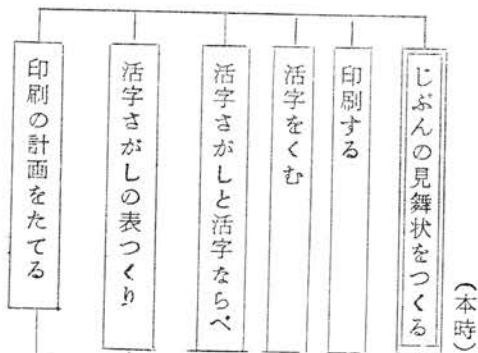 (本時)
じぶんの見舞状をつくる
印刷する
活字をくむ
活字さがしと活字ならべ
活字さがしの表つくり
印刷の計画をたてる